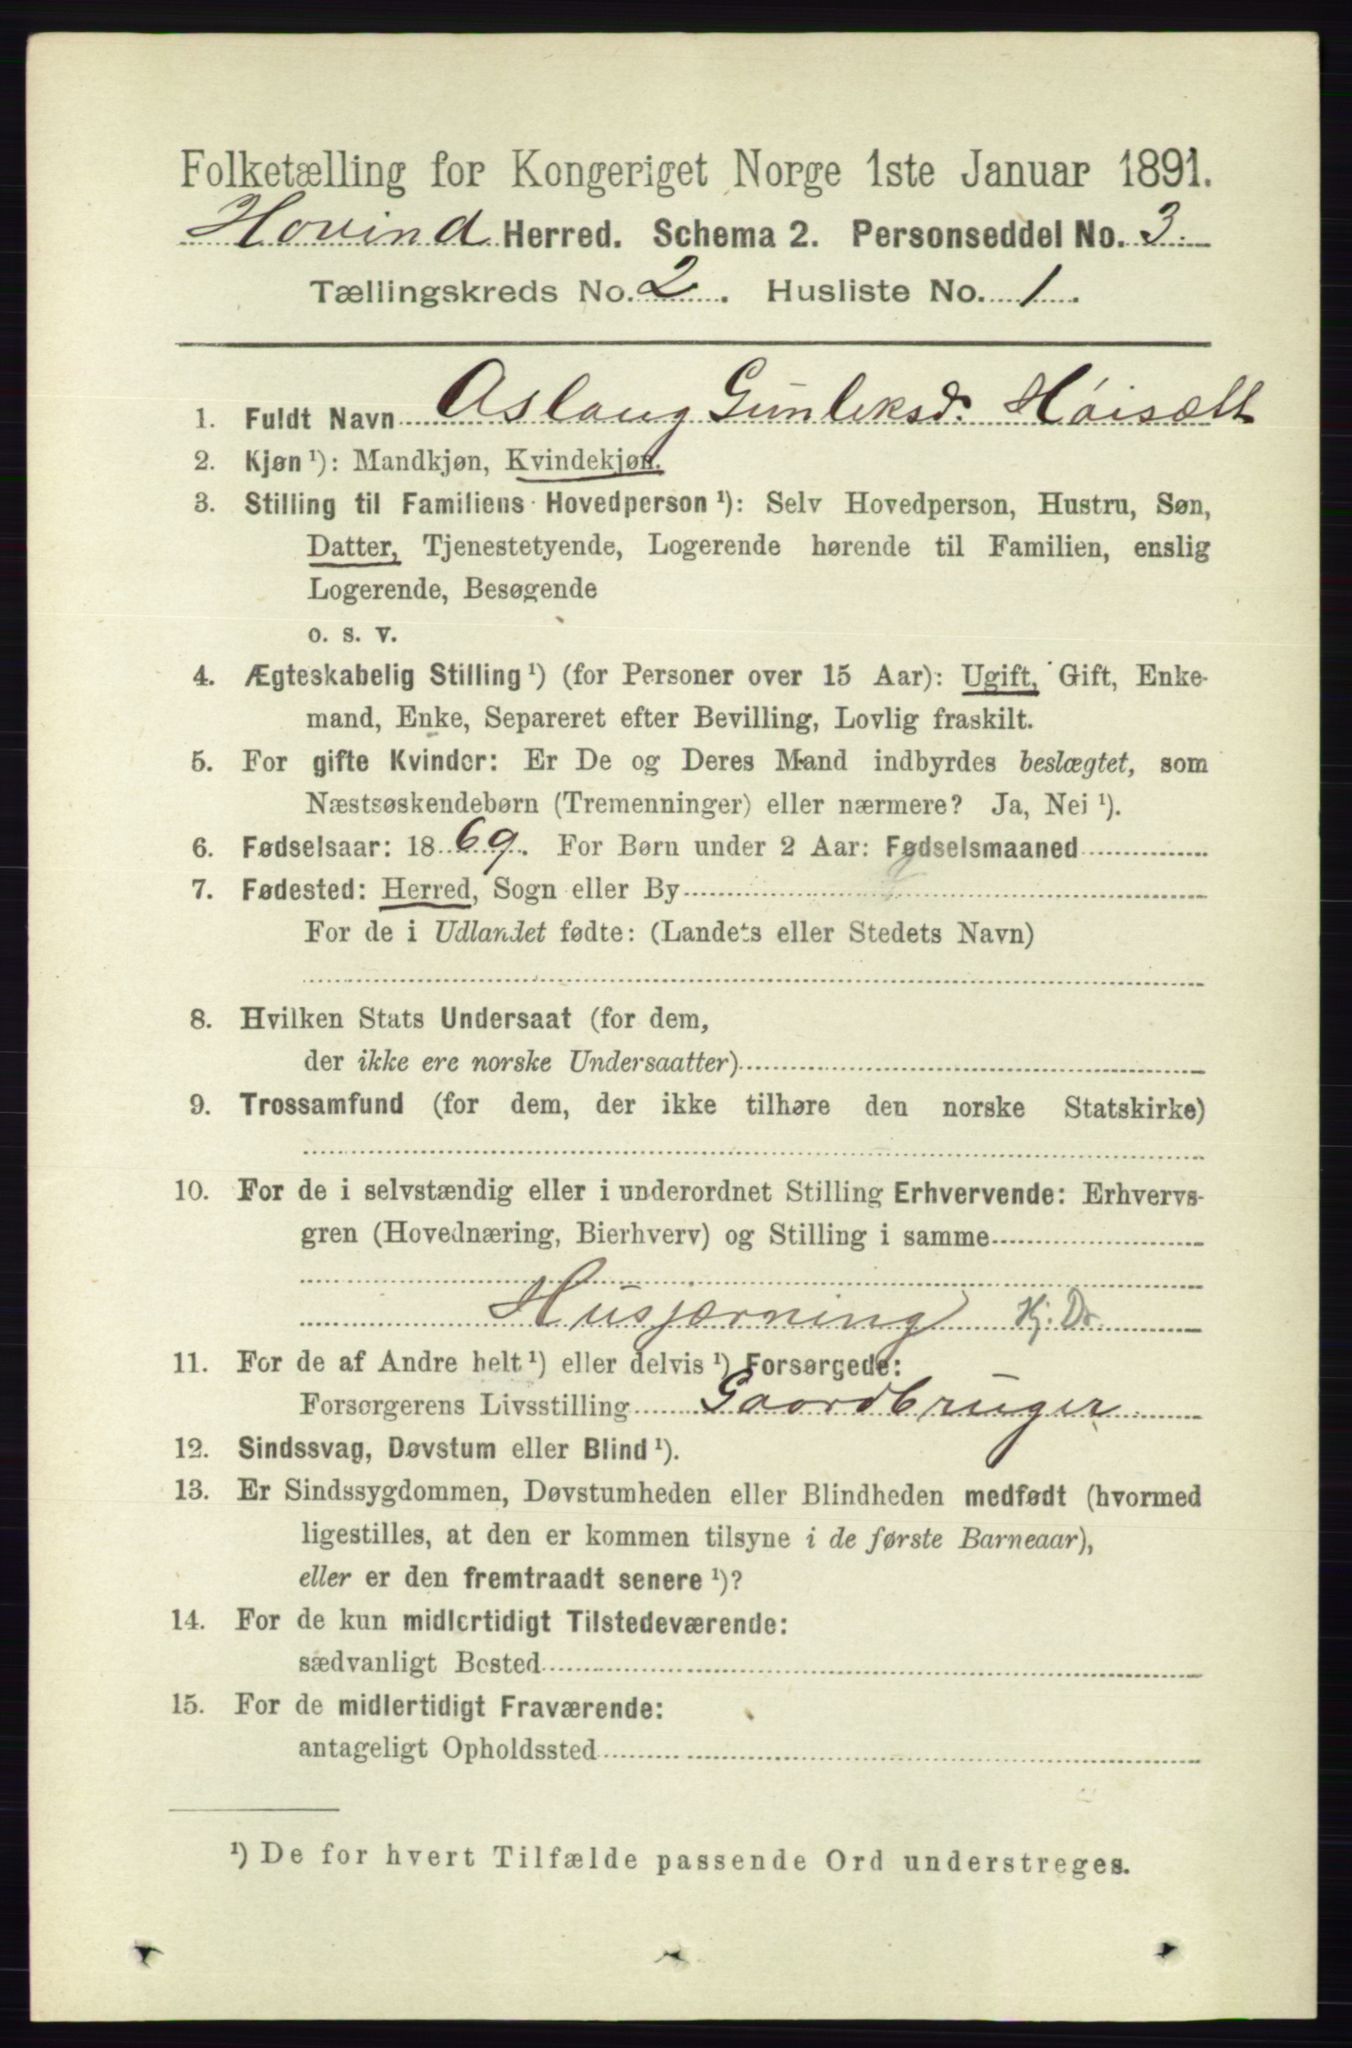 Folketælling for Kongeriget Norge 1ste Januar 1891.
Hovind Herred. Schema 2. Personseddel No. 3.
Tællingskreds No. 2. Husliste No. 1.
1. Fuldt Navn Aslaug Gunleksd. Høisætt
2. Kjøn ¹): Mandkjøn, Kvindekjøn.
3. Stilling til Familiens Hovedperson ¹): Selv Hovedperson, Hustru, Søn,
Datter, Tjenestetyende, Logerende hørende til Familien, enslig
Logerende, Besøgende
o. s. v.
4. Ægteskabelig Stilling ¹) (for Personer over 15 Aar): Ugift, Gift, Enke-
mand, Enke, Separeret efter Bevilling, Lovlig fraskilt.
5. For gifte Kvinder: Er De og Deres Mand indbyrdes beslægtet, som
Næstsøskendebørn (Tremenninger) eller nærmere? Ja, Nei ¹).
6. Fødselsaar: 1869. For Børn under 2 Aar: Fødselsmaaned
7. Fødested: Herred, Sogn eller By
For de i Udlandet fødte: (Landets eller Stedets Navn)
8. Hvilken Stats Undersaat (for dem,
der ikke ere norske Undersaatter)
9. Trossamfund (for dem, der ikke tilhøre den norske Statskirke)
10. For de i selvstændig eller i underordnet Stilling Erhvervende: Erhvervs-
gren (Hovednæring, Bierhverv) og Stilling i samme
Husjærning Hj. Dr.
11. For de af Andre helt ¹) eller delvis ¹) Forsørgede:
Forsørgerens Livsstilling Gaardbruger
12. Sindssvag, Døvstum eller Blind ¹).
13. Er Sindssygdommen, Døvstumheden eller Blindheden medfødt (hvormed
ligestilles, at den er kommen tilsyne i de første Barneaar),
eller er den fremtraadt senere ¹)?
14. For de kun midlertidigt Tilstedeværende:
sædvanligt Bosted
15. For de midlertidigt Fraværende:
antageligt Opholdssted
¹) De for hvert Tilfælde passende Ord understreges.